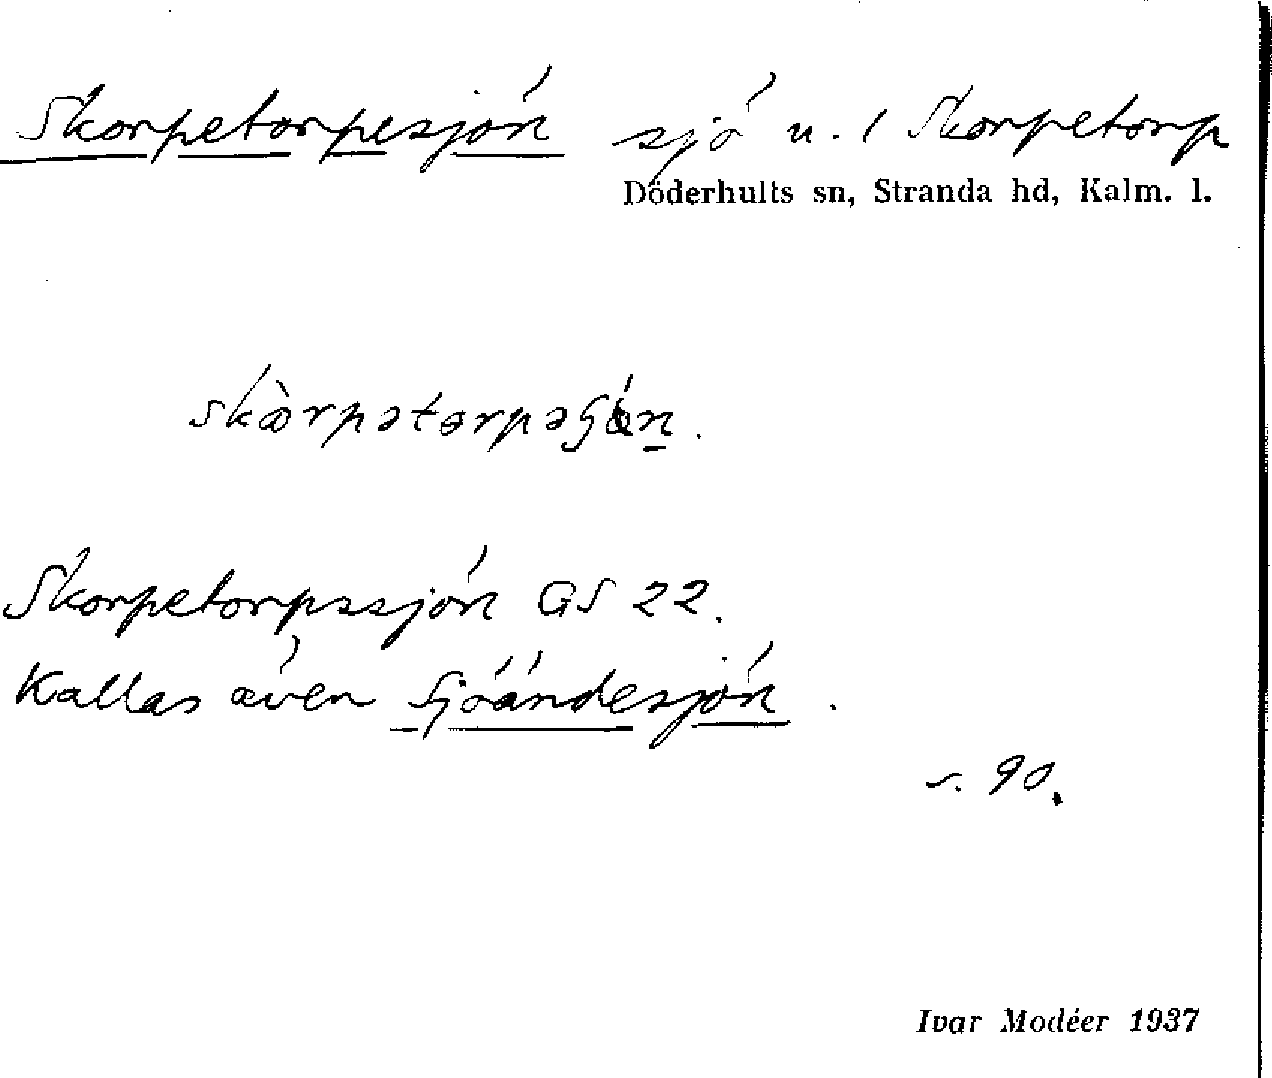 Skorpetorpesjön sjö u. / Skorpetorp
Döderhults sn, Stranda hd, Kalm. l.
skòrpətərpəʃón.
Skorpetorpssjön GS 22.
Kallas även Sjöändesjön.
s. 90.
Ivar Modéer 1937